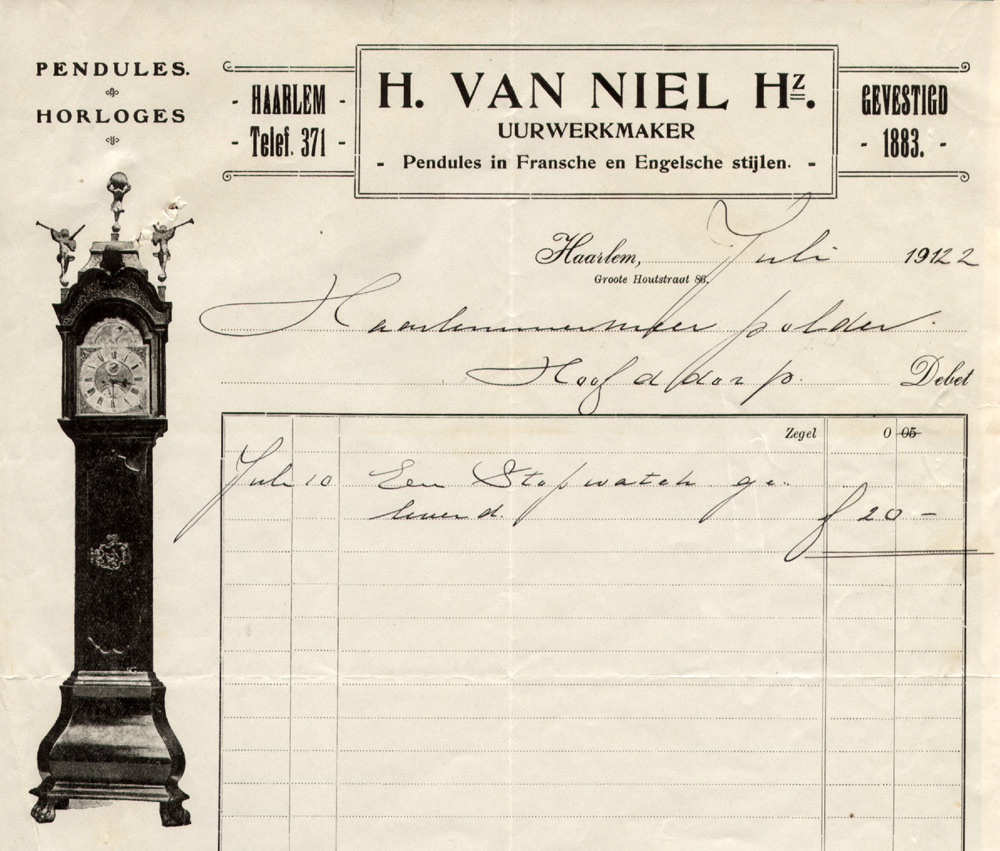 PENDULES.
HORLOGES
- HAARLEM -
- Telef. 371 -
H. VAN NIEL Hz.
UURWERKMAKER
- Pendules in Fransche en Engelsche stijlen. -
GEVESTIGD
- 1883. -
Haarlem, Juli 19122
Groote Houtstraat 86.
Haarlemmermeer polder.
Hoofddorp. Debet
Zegel 0 05
Juli 10 Een Stopwatch ge-
leverd. f 20 -